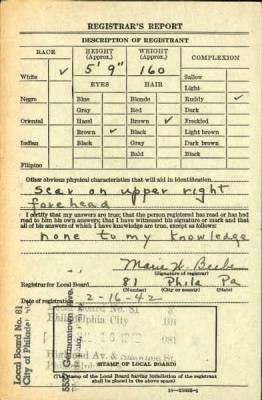 REGISTRAR'S REPORT
DESCRIPTION OF REGISTRANT
RACE HEIGHT (Approx.) WEIGHT (Approx.) COMPLEXION
White ✓ 5' 9" 160 Sallow
Light
EYES HAIR
Negro Blue Blonde Ruddy ✓
Gray Red Dark
Oriental Hazel Brown ✓ Freckled
Brown ✓ Black Light brown
Indian Black Gray Dark brown
Bald Black
Filipino
Other obvious physical characteristics that will aid in identification
Scar on upper right
forehead
I certify that my answers are true; that the person registered has read or has had
read to him his own answers; that I have witnessed his signature or mark and that
all of his answers of which I have knowledge are true, except as follows:
none to my knowledge
Marie
Registrar for Local Board 81 Phila Pa
(Number) (City or county) (State)
Date of registration 2-16-42
Local Board No. 81
City of Philadel
Germantown
Local Board No. 81
Philadelphia City
(STAMP OF LOCAL BOARD)
(The stamp of the Local Board having jurisdiction of the registrant
shall be placed in the above space)